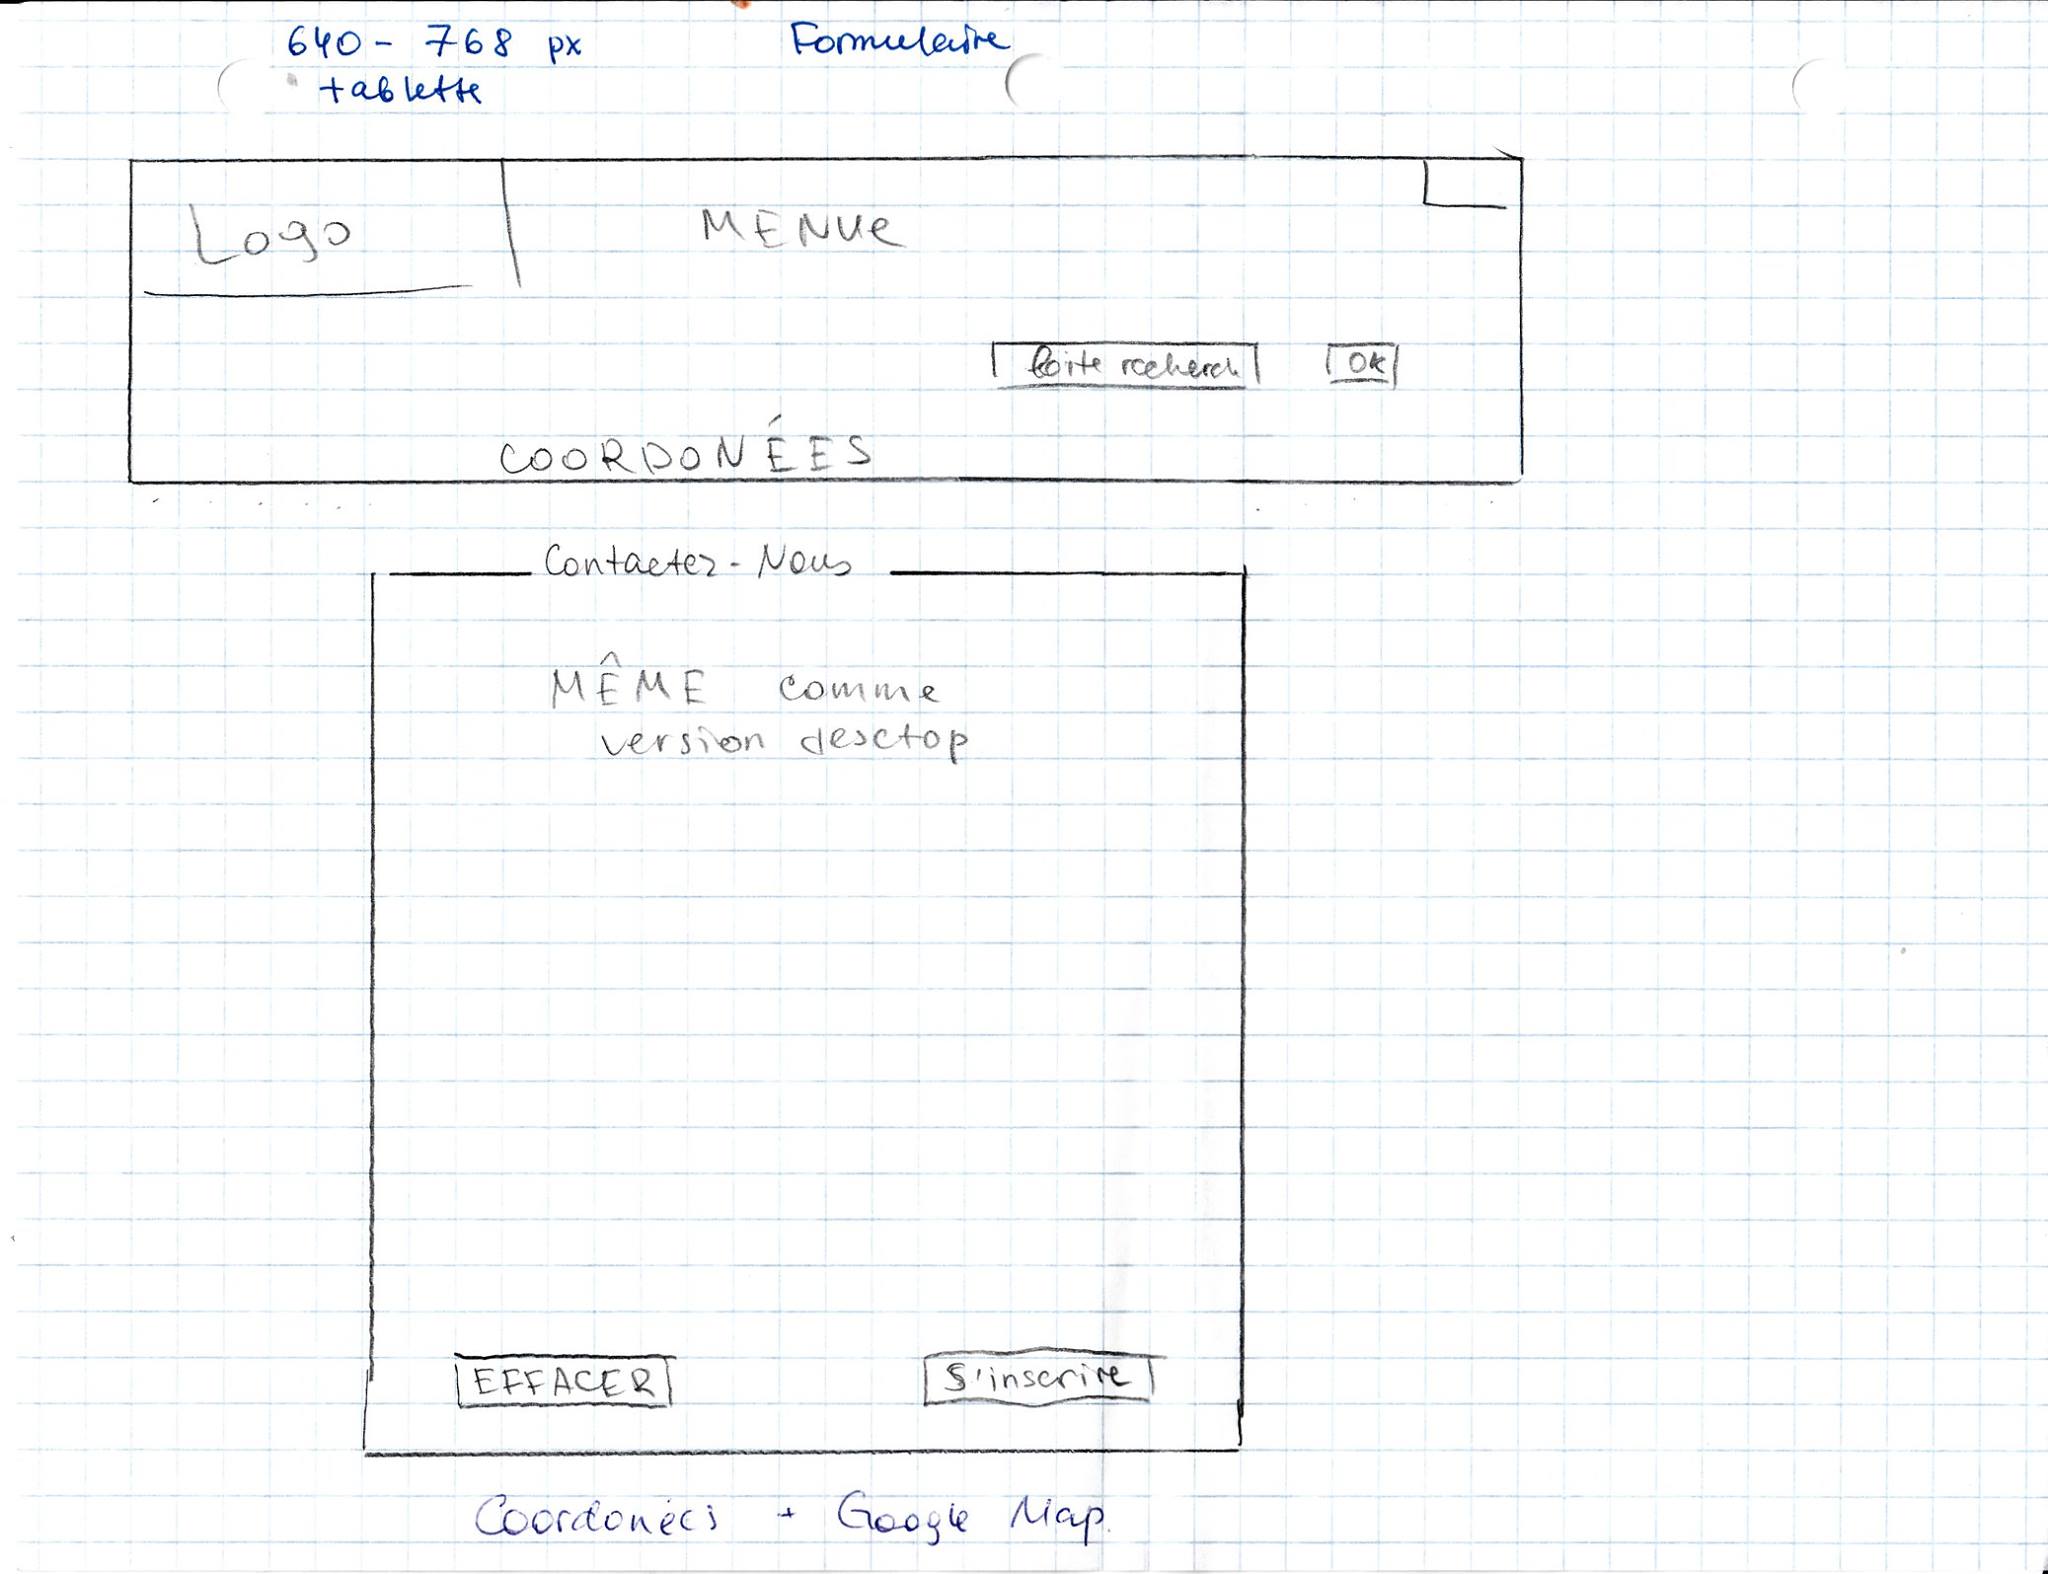 640 - 768 px Formulaire
tablette
Logo
MENUe
boite recherch
OK
COORDONÉES
Contactez - Nous
MÊME comme
version desctop
EFFACER
S'inscrire
Coordonées + Google Map